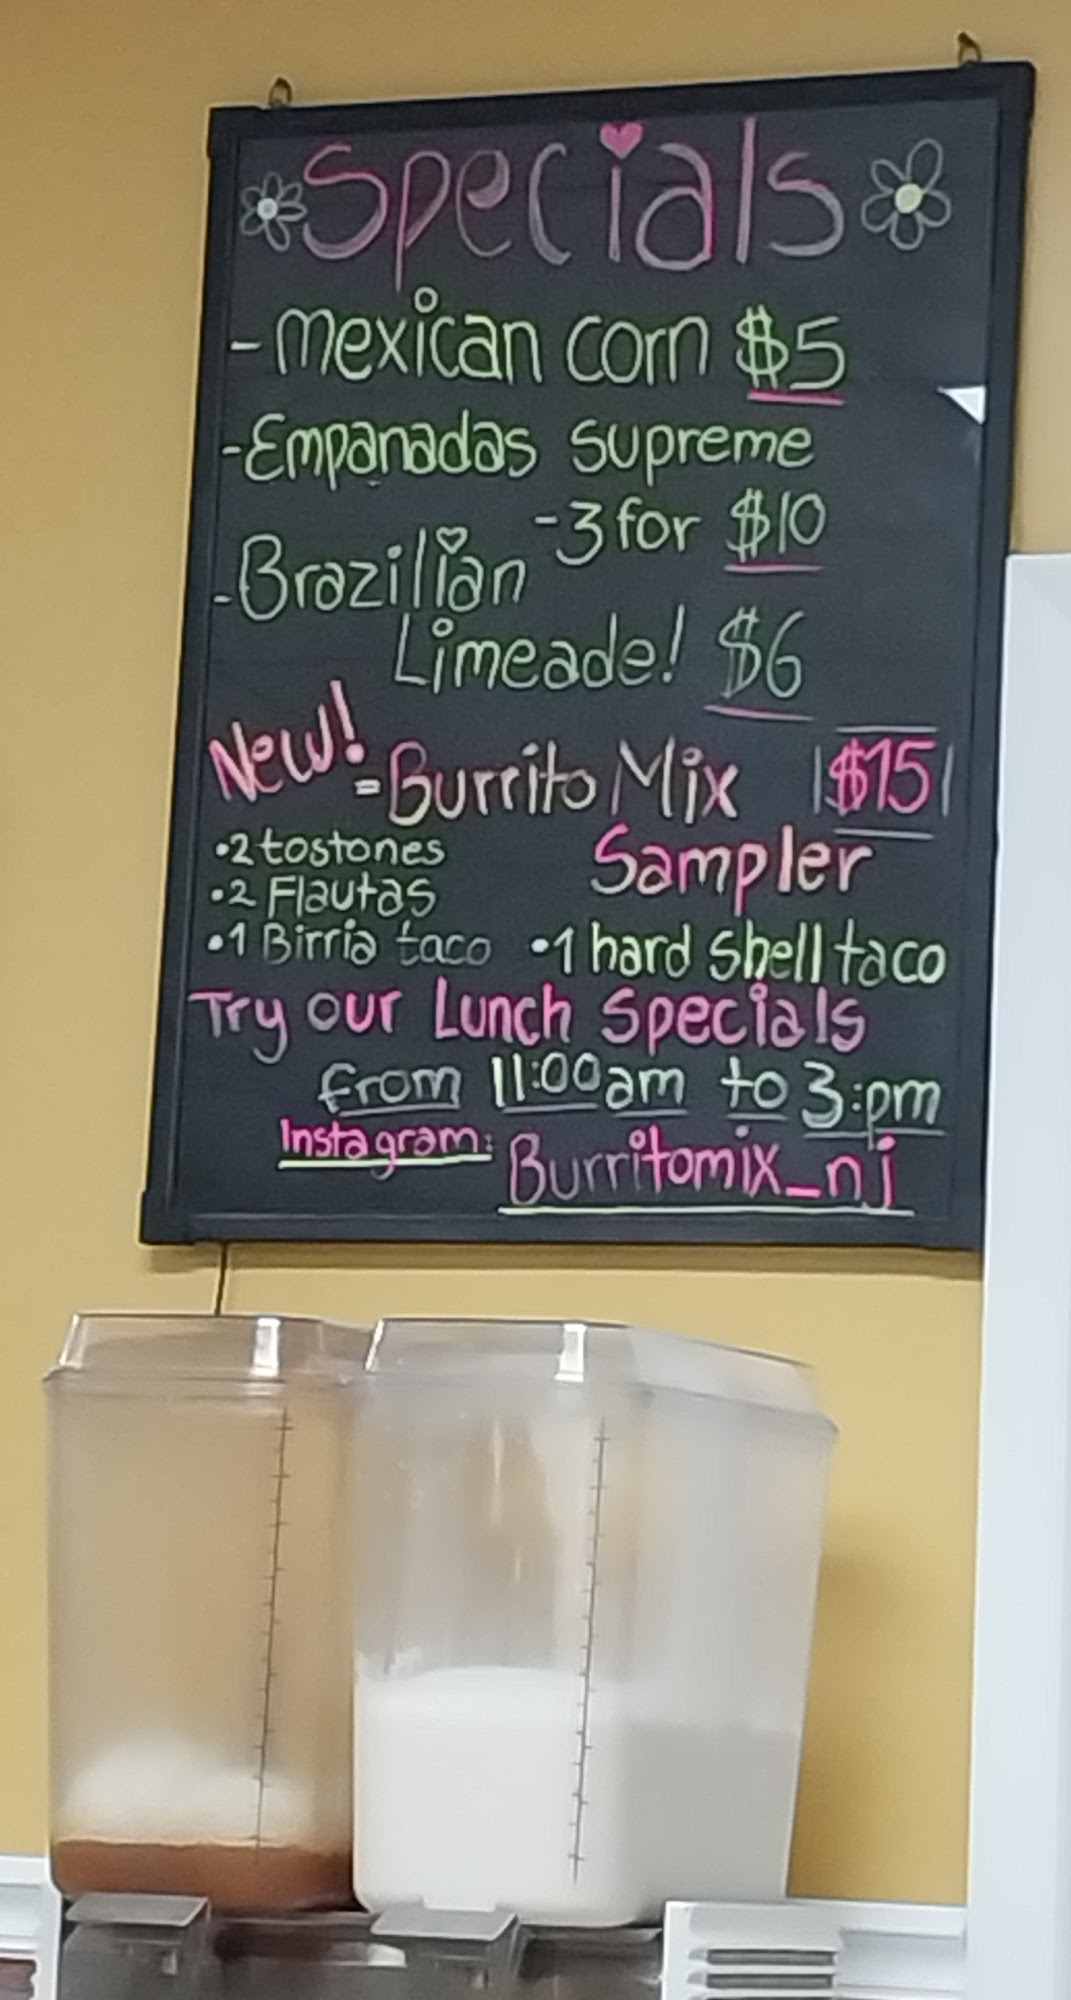 Specials
- Mexican corn $5
- Empanadas supreme
- 3 for $10
- Brazilian
Limeade! $6
New! = Burrito Mix $15
Sampler
• 2 tostones
• 2 Flautas
• 1 Birria taco • 1 hard shell taco
Try our Lunch Specials
from 11:00am to 3:pm
Instagram: Burritomix_nj